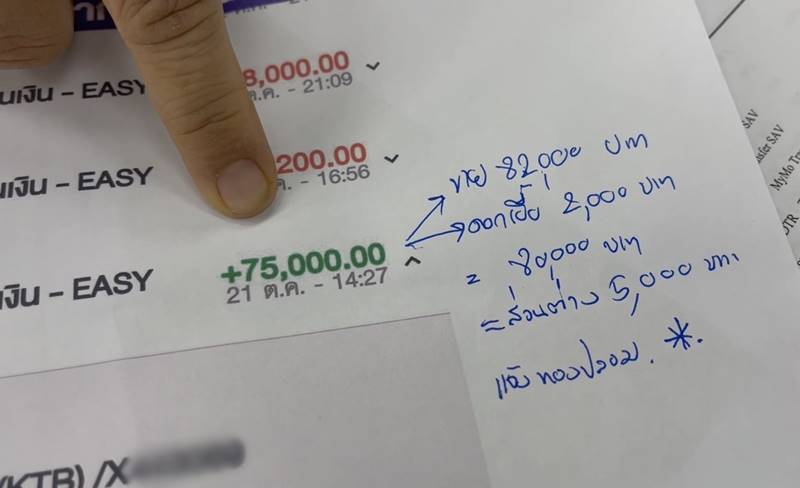 8,000.00
นเงิน – EASY
ต.ค. - 21:09
200.00
นเงิน – EASY
ค. - 16:56
+75,000.00
งิน – EASY
21 ต.ค. - 14:27
ขาย 82,000 บาท
ดอกเบี้ย 2,000 บาท
= 80,000 บาท
= ส่วนต่าง 5,000 บาท
แจ้งทองปลอม. *.
(KTB) /X
SAV
nsfer SAV
MyMo Tra
DTR